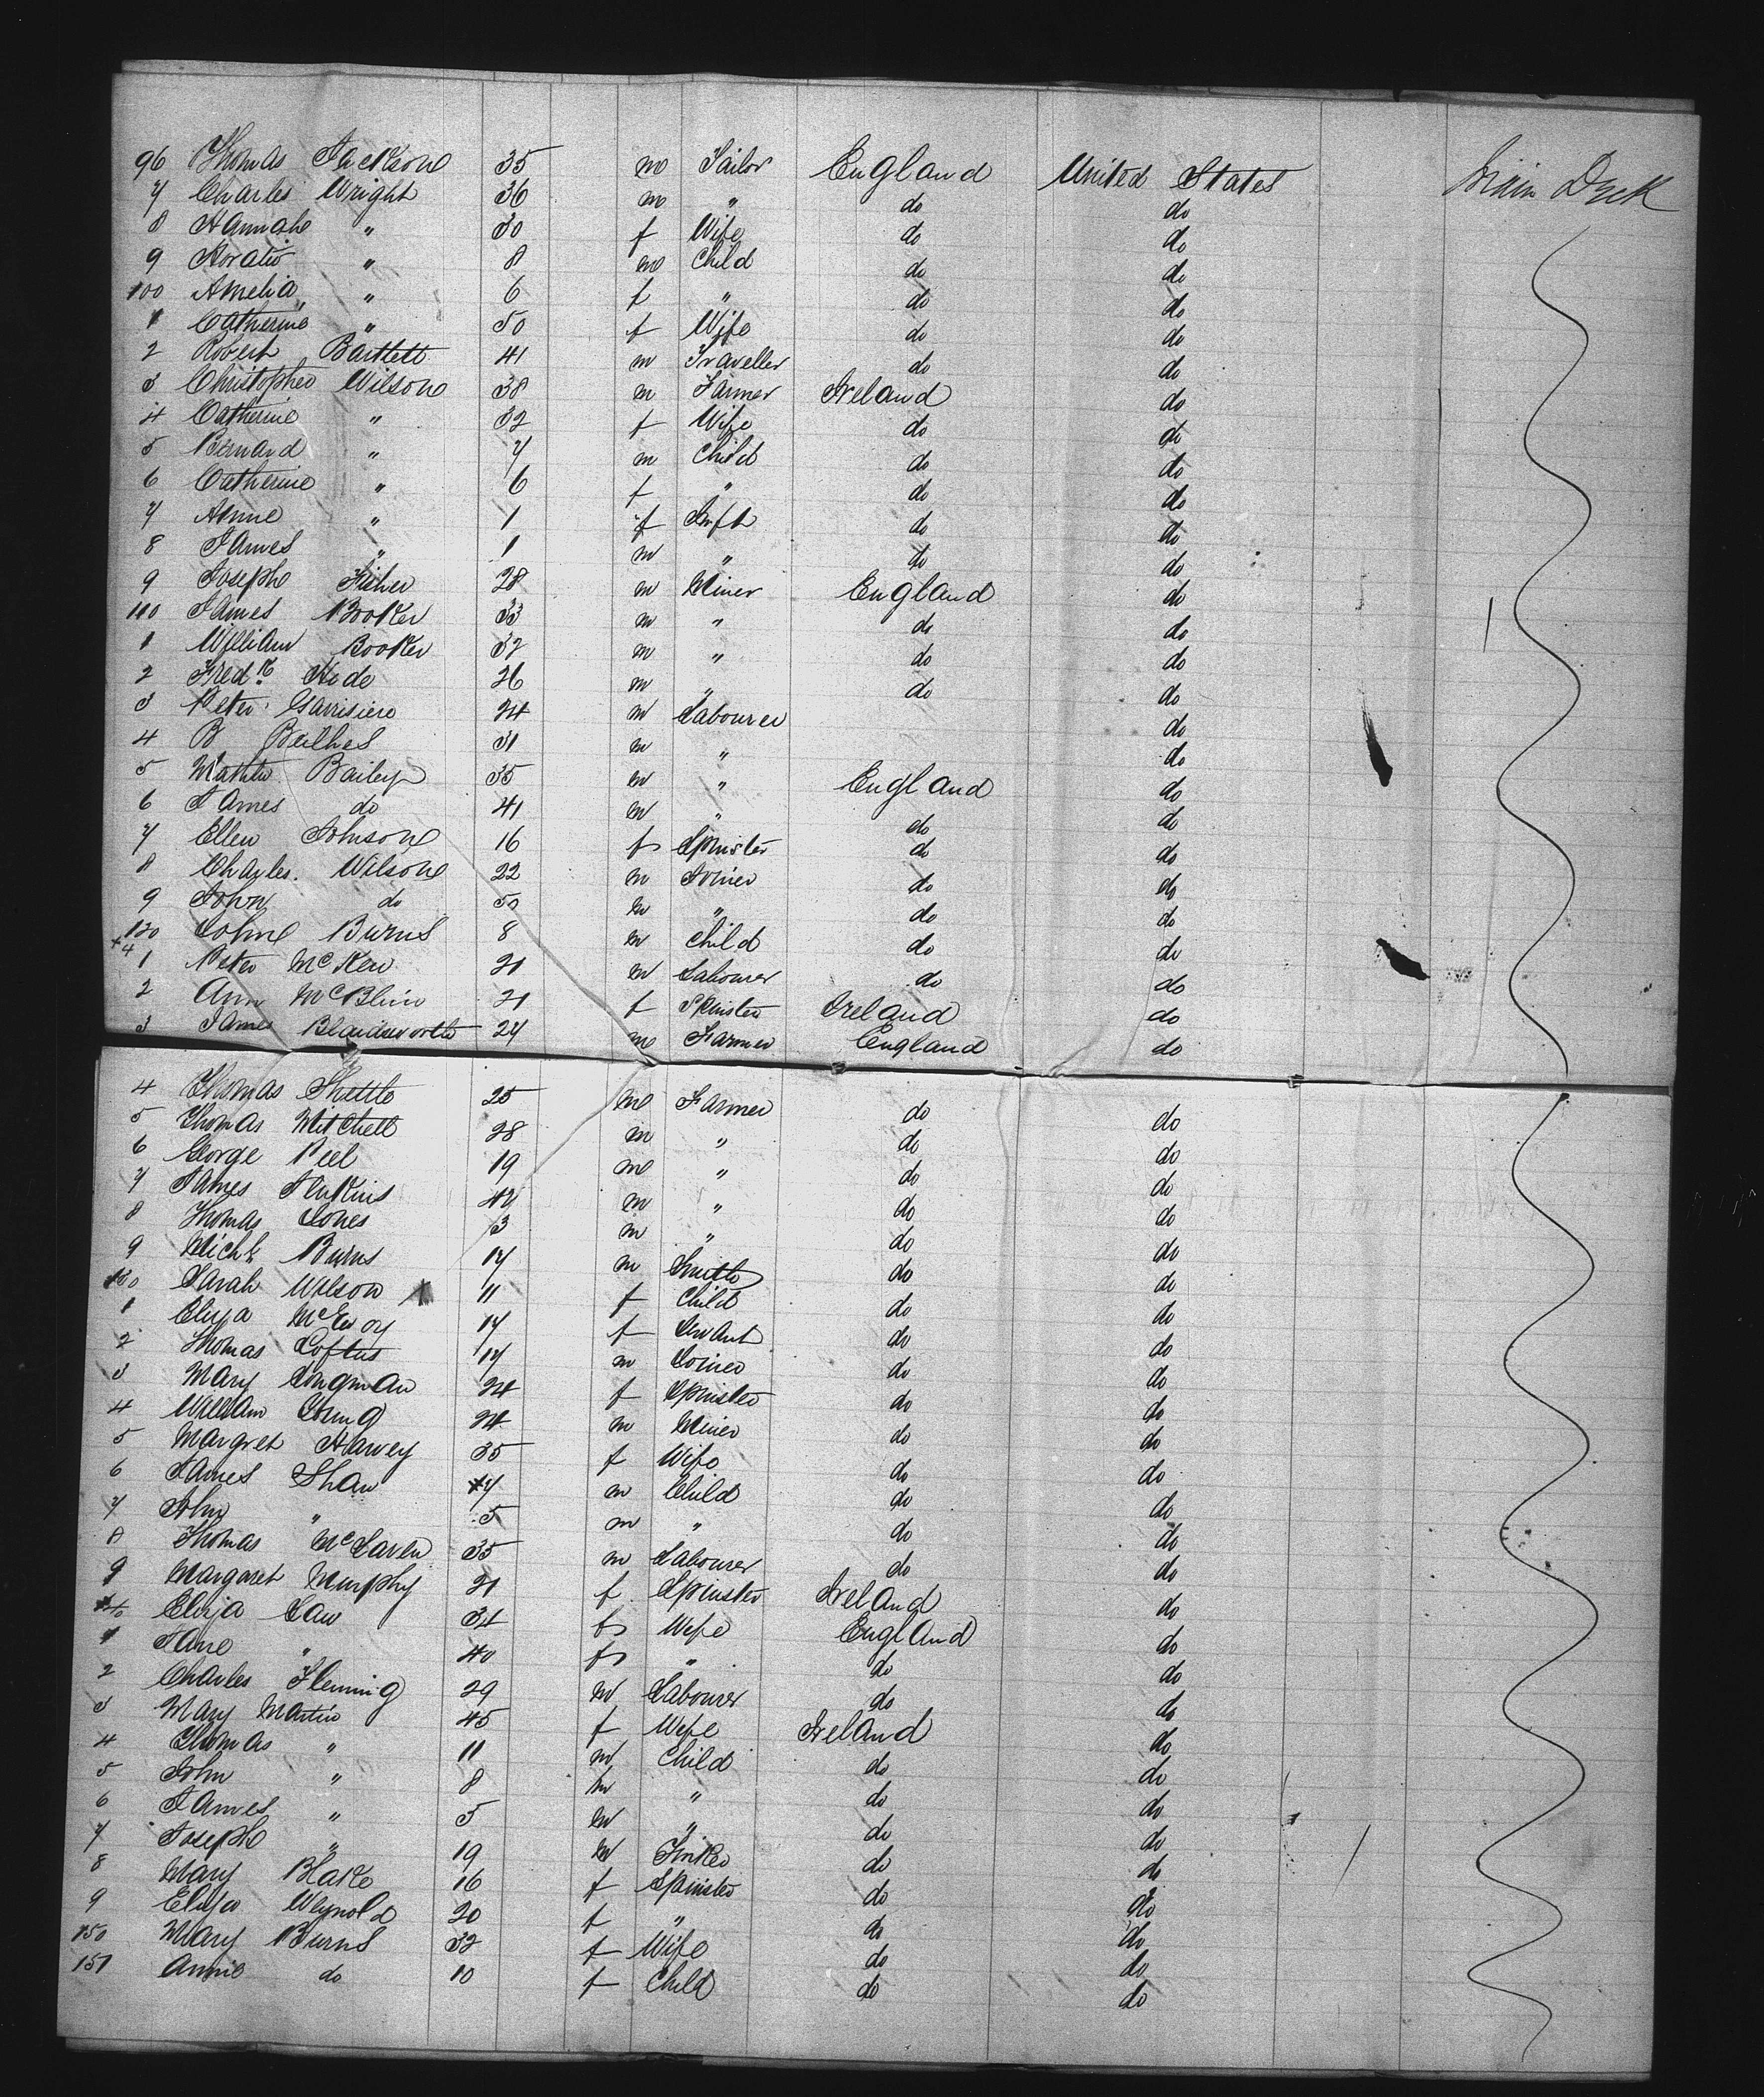 96 Thomas Jackson 35 m Tailor England United States Main Deck
7 Charles Wright 36 m " do do
8 Hannah " 30 f Wife do do
9 Horatio " 8 m Child do do
100 Amelia " 6 f " do do
1 Catherine " 50 f Wife do do
2 Robert Bartlett 41 m Traveller do do
3 Christopher Wilson 38 m Farmer Ireland do
4 Catherine " 32 f Wife do do
5 Bernard " 7 m Child do do
6 Catherine " 6 f " do do
7 Annie " 1 f Inft do do
8 James " 1 m " do do
9 Joseph Fisher 28 m Miner England do
110 James Booker 33 m " do do
1 William Booker 32 m " do do
2 Fredk Hide 26 m " do do
3 Peter 24 m Labourer do
4 B 31 m " do
5 Bailey 35 m " England do
6 James do 41 m " do do
7 Ellen Johnson 16 f Spinster do do
8 Charles Wilson 22 m Joiner do do
9 John do 50 m " do do
120 John Burns 8 m Child do do
+4
1 Peter McKew 21 m Labourer do do
2 Ann 21 f Spinster Ireland do
3 James 24 m Farmer England do
4 Thomas 25 m Farmer do do
5 Thomas Mitchell 28 m " do do
6 George Peel 19 m " do do
7 James Jenkins m " do do
8 Thomas Jones 3 m " do do
9 Michl Burns 17 m Smith do do
130 Sarah Wilson 11 f Child do do
1 Eliza McEvoy 17 f Servant do do
2 Thomas Loftus 17 m Joiner do do
3 Mary Longman 24 f Spinster do do
4 William Young 24 m Miner do do
5 Margret Harvey 35 f Wife do do
6 James Shaw 7 m Child do do
7 John " 5 m " do do
8 Thomas McLaren 35 m Labourer do do
9 Margaret Murphy 21 f Spinster Ireland do
140 Eliza Law 34 f Wife England do
1 Jane " 40 f " do do
2 Charles Fleming 29 m Labourer do do
3 Mary Martin 45 f Wife Ireland do
4 Thomas " 11 m Child do do
5 John " 8 m " do do
6 James " 5 m " do do
7 Joseph " 19 m Tinker do do
8 Mary Blake 16 f Spinster do do
9 Eliza 20 f " do do
150 Mary Burns 32 f Wife do do
151 Annie do 10 f Child do do